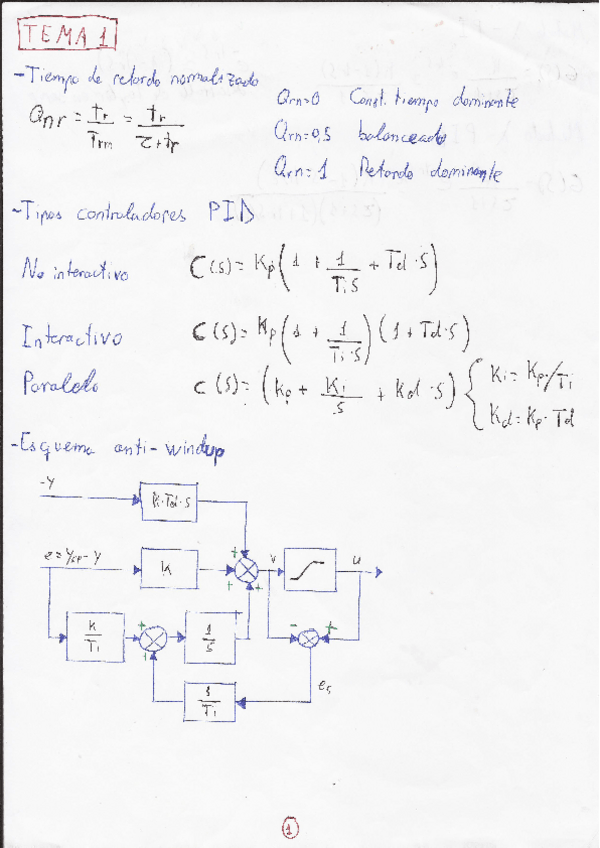 TEMA 1
-Tiempo de retardo normalizado
Qnr = tr/Trm = tr/τ+tr
Qrn=0 Const. tiempo dominante
Qrn=0,5 balanceado
Qrn=1 Retardo dominante
-Tipos controladores PID
No interactivo C(s)= Kp(1 + 1/Ti·s + Td·s)
Interactivo C(s)= Kp(1 + 1/Ti·s)(1+Td·s)
Paralelo C(s)= (Kp + Ki/s + Kd·s) { Ki=Kp/Ti
Kd=Kp·Td
-Esquema anti-windup
-Y
K·Td·s
e=Ysp-Y
K
+ + +
v
u
K/Ti
+ +
1/s
- +
1/Ti
es
1